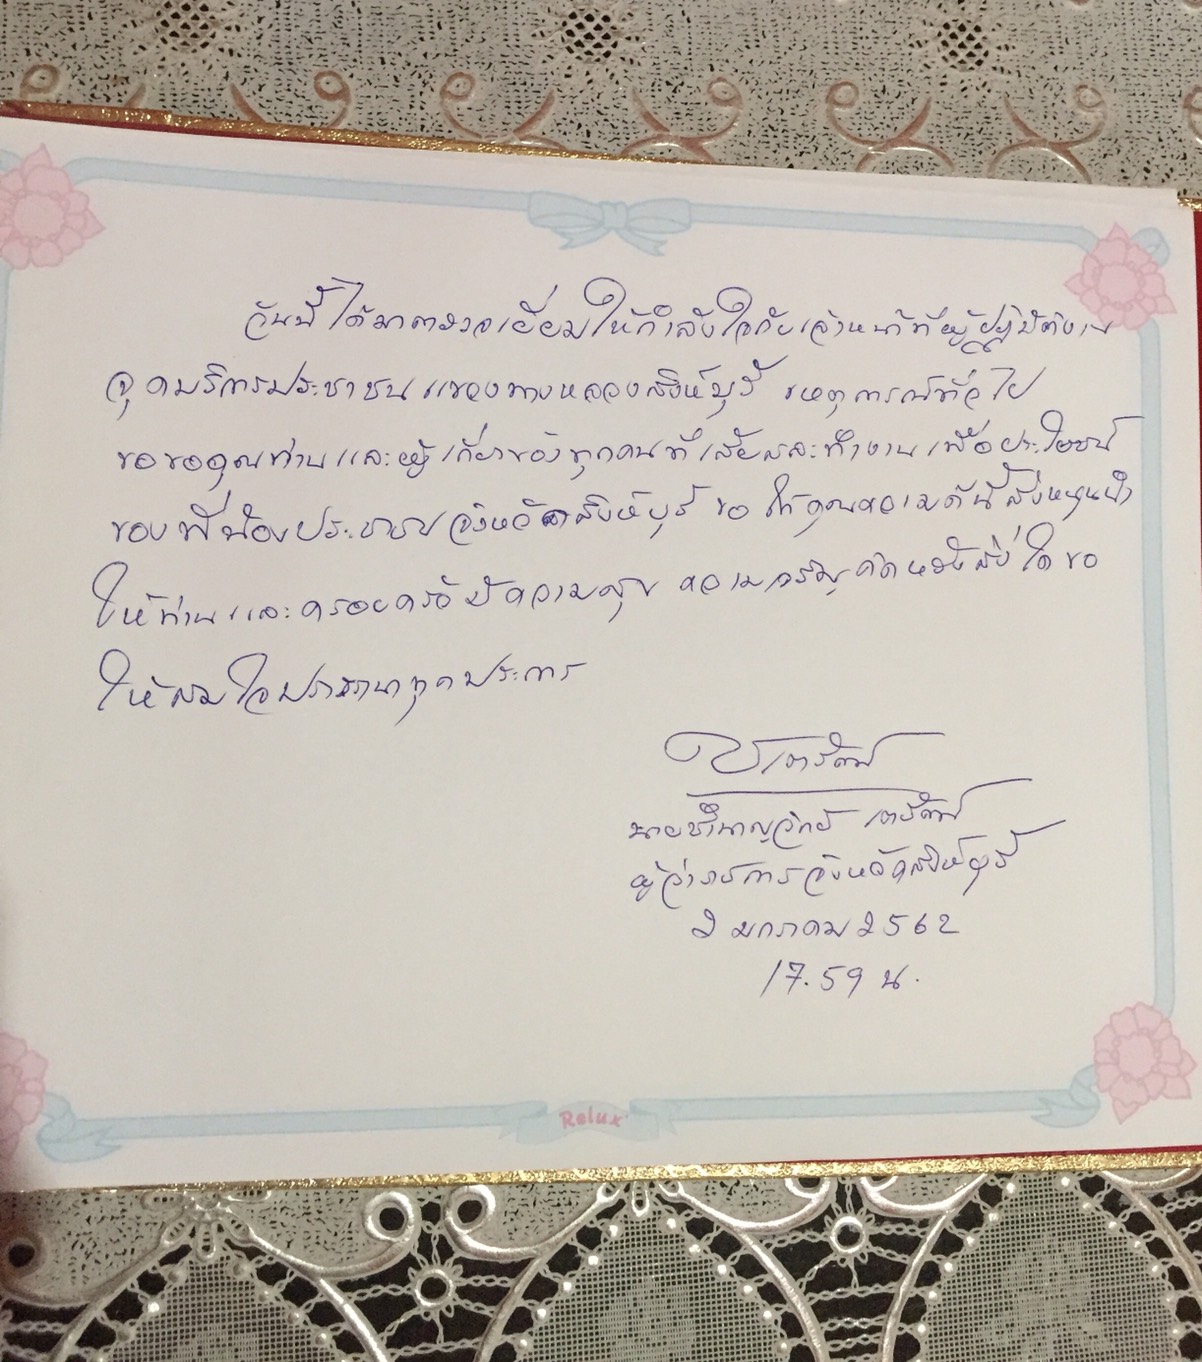 วันนี้ได้มาตรวจเยี่ยมให้กำลังใจกับเจ้าหน้าที่ผู้ปฏิบัติงาน
จุดบริการประชาชน แขวงทางหลวงสิงห์บุรี เหตุการณ์ทั่วไป
ขอขอบคุณท่านและผู้เกี่ยวข้องทุกคนที่เสียสละทำงานเพื่อประโยชน์
ของพี่น้องประชาชนจังหวัดสิงห์บุรี ขอให้คุณความดีนี้ส่งหนุนนำ
ให้ท่านและครอบครัวมีความสุข ความเจริญ คิดหวังสิ่งใดขอ
ให้สมใจปรารถนาทุกประการ
นายชำนาญวิทย์ เตรัตน์
ผู้ว่าราชการจังหวัดสิงห์บุรี
2 มกราคม 2562
17.59 น.
Relux